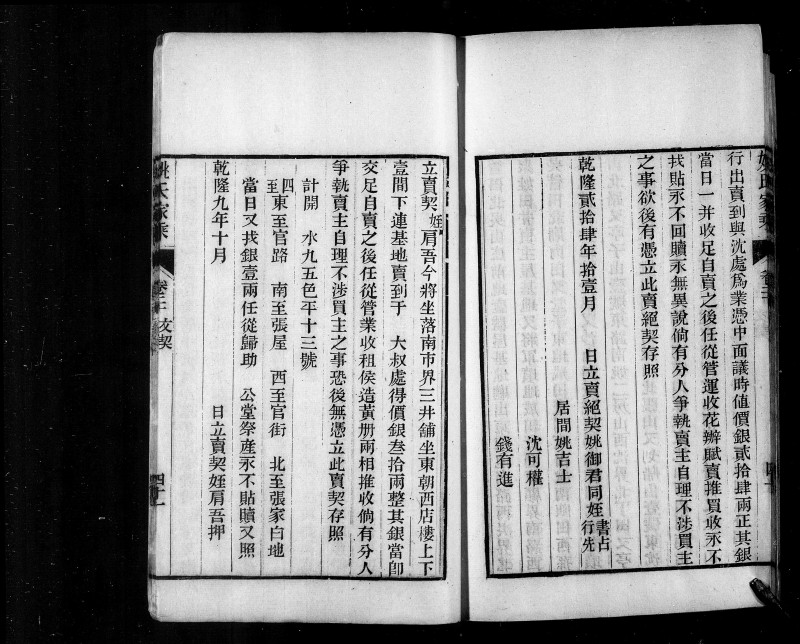 姚氏家乘
行出賣到與沈處爲業憑中面議時値價銀貳拾肆兩正其銀
當日一并收足自賣之後任從管運收花辦賦賣推買收永不
找貼永不回贖永無異說倘有分人爭執賣主自理不涉買主
之事欲後有憑立此賣絕契存照
乾隆貳拾肆年拾壹月 日立賣絕契姚御君同姪行先書占
居間姚吉士
沈可權
錢有進
立賣契姪肩吾今將坐落南市界三井舖坐東朝西店樓上下
壹間下連基地賣到于 大叔處得價銀叁拾兩整其銀當卽
交足自賣之後任從管業收租侯造黃册兩相推收倘有分人
爭執賣主自理不涉買主之事恐後無憑立此賣契存照
計開 水九五色平十三號
四至東至官路 南至張屋 西至官街 北至張家白地
當日又找銀壹兩任從歸助 公堂祭產永不貼贖又照
乾隆九年十月 日立賣契姪肩吾押
姚氏家乘 卷三 文契 四十一